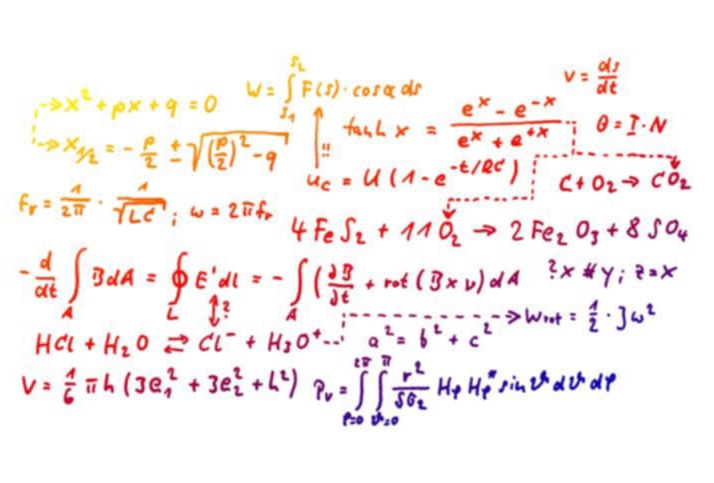 x² + px + q = 0
W = ∫ₛ₁ˢ² F(s) · cos α ds
v = ds/dt
x₁/₂ = - p/2 ± √((p/2)² - q)
!!
tanh x = (eˣ - e⁻ˣ)/(eˣ + e⁺ˣ)
θ = I · N
u_C = U (1 - e^(-t/RC))
C + O₂ → CO₂
Fᵣ = 1/2π · 1/√LC ; ω = 2π fᵣ
4 FeS₂ + 11 O₂ → 2 Fe₂O₃ + 8 SO₄
- d/dt ∫_A B dA = ∮_L E' dl = - ∫_A (∂B/∂t + rot (B × v) dA
?x # y ; z = x
?
HCl + H₂O ⇄ Cl⁻ + H₃O⁺
a² = b² + c²
W_rot = 1/2 · J ω²
V = 1/6 π h (3e₁² + 3e₂² + h²)
Pᵥ = ∫_(φ=0)^(2π) ∫_(ϑ=0)^π Hφ Hφ* sin ϑ dϑ dφ